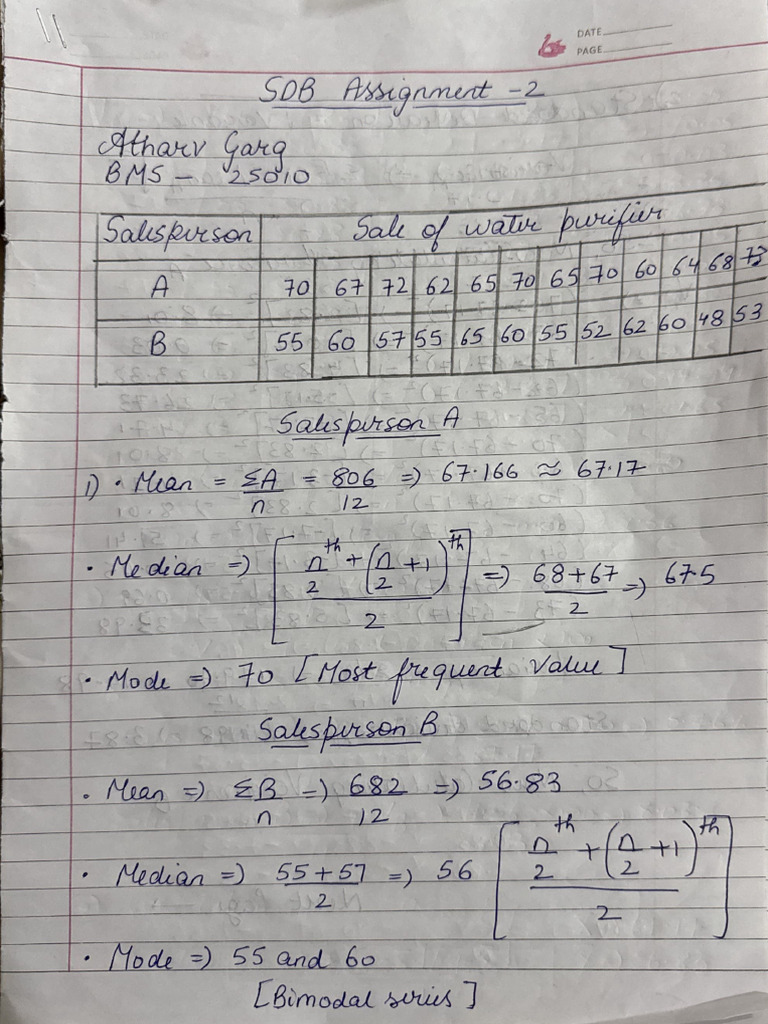 DATE
PAGE
SDB Assignment - 2
Atharv Garg
BMS - 25010
Salesperson Sale of water purifier
A 70 67 72 62 65 70 65 70 60 64 68 73
B 55 60 57 55 65 60 55 52 62 60 48 53
Salesperson A
1) • Mean = ΣA/n = 806/12 => 67.166 ≈ 67.17
• Median => [(n/2 th + (n/2 + 1) th)/2] => 68+67/2 => 67.5
• Mode => 70 [Most frequent value]
Salesperson B
• Mean => ΣB/n => 682/12 => 56.83
• Median => 55+57/2 => 56 [(n/2 th + (n/2 + 1) th)/2]
• Mode => 55 and 60
[Bimodal series]